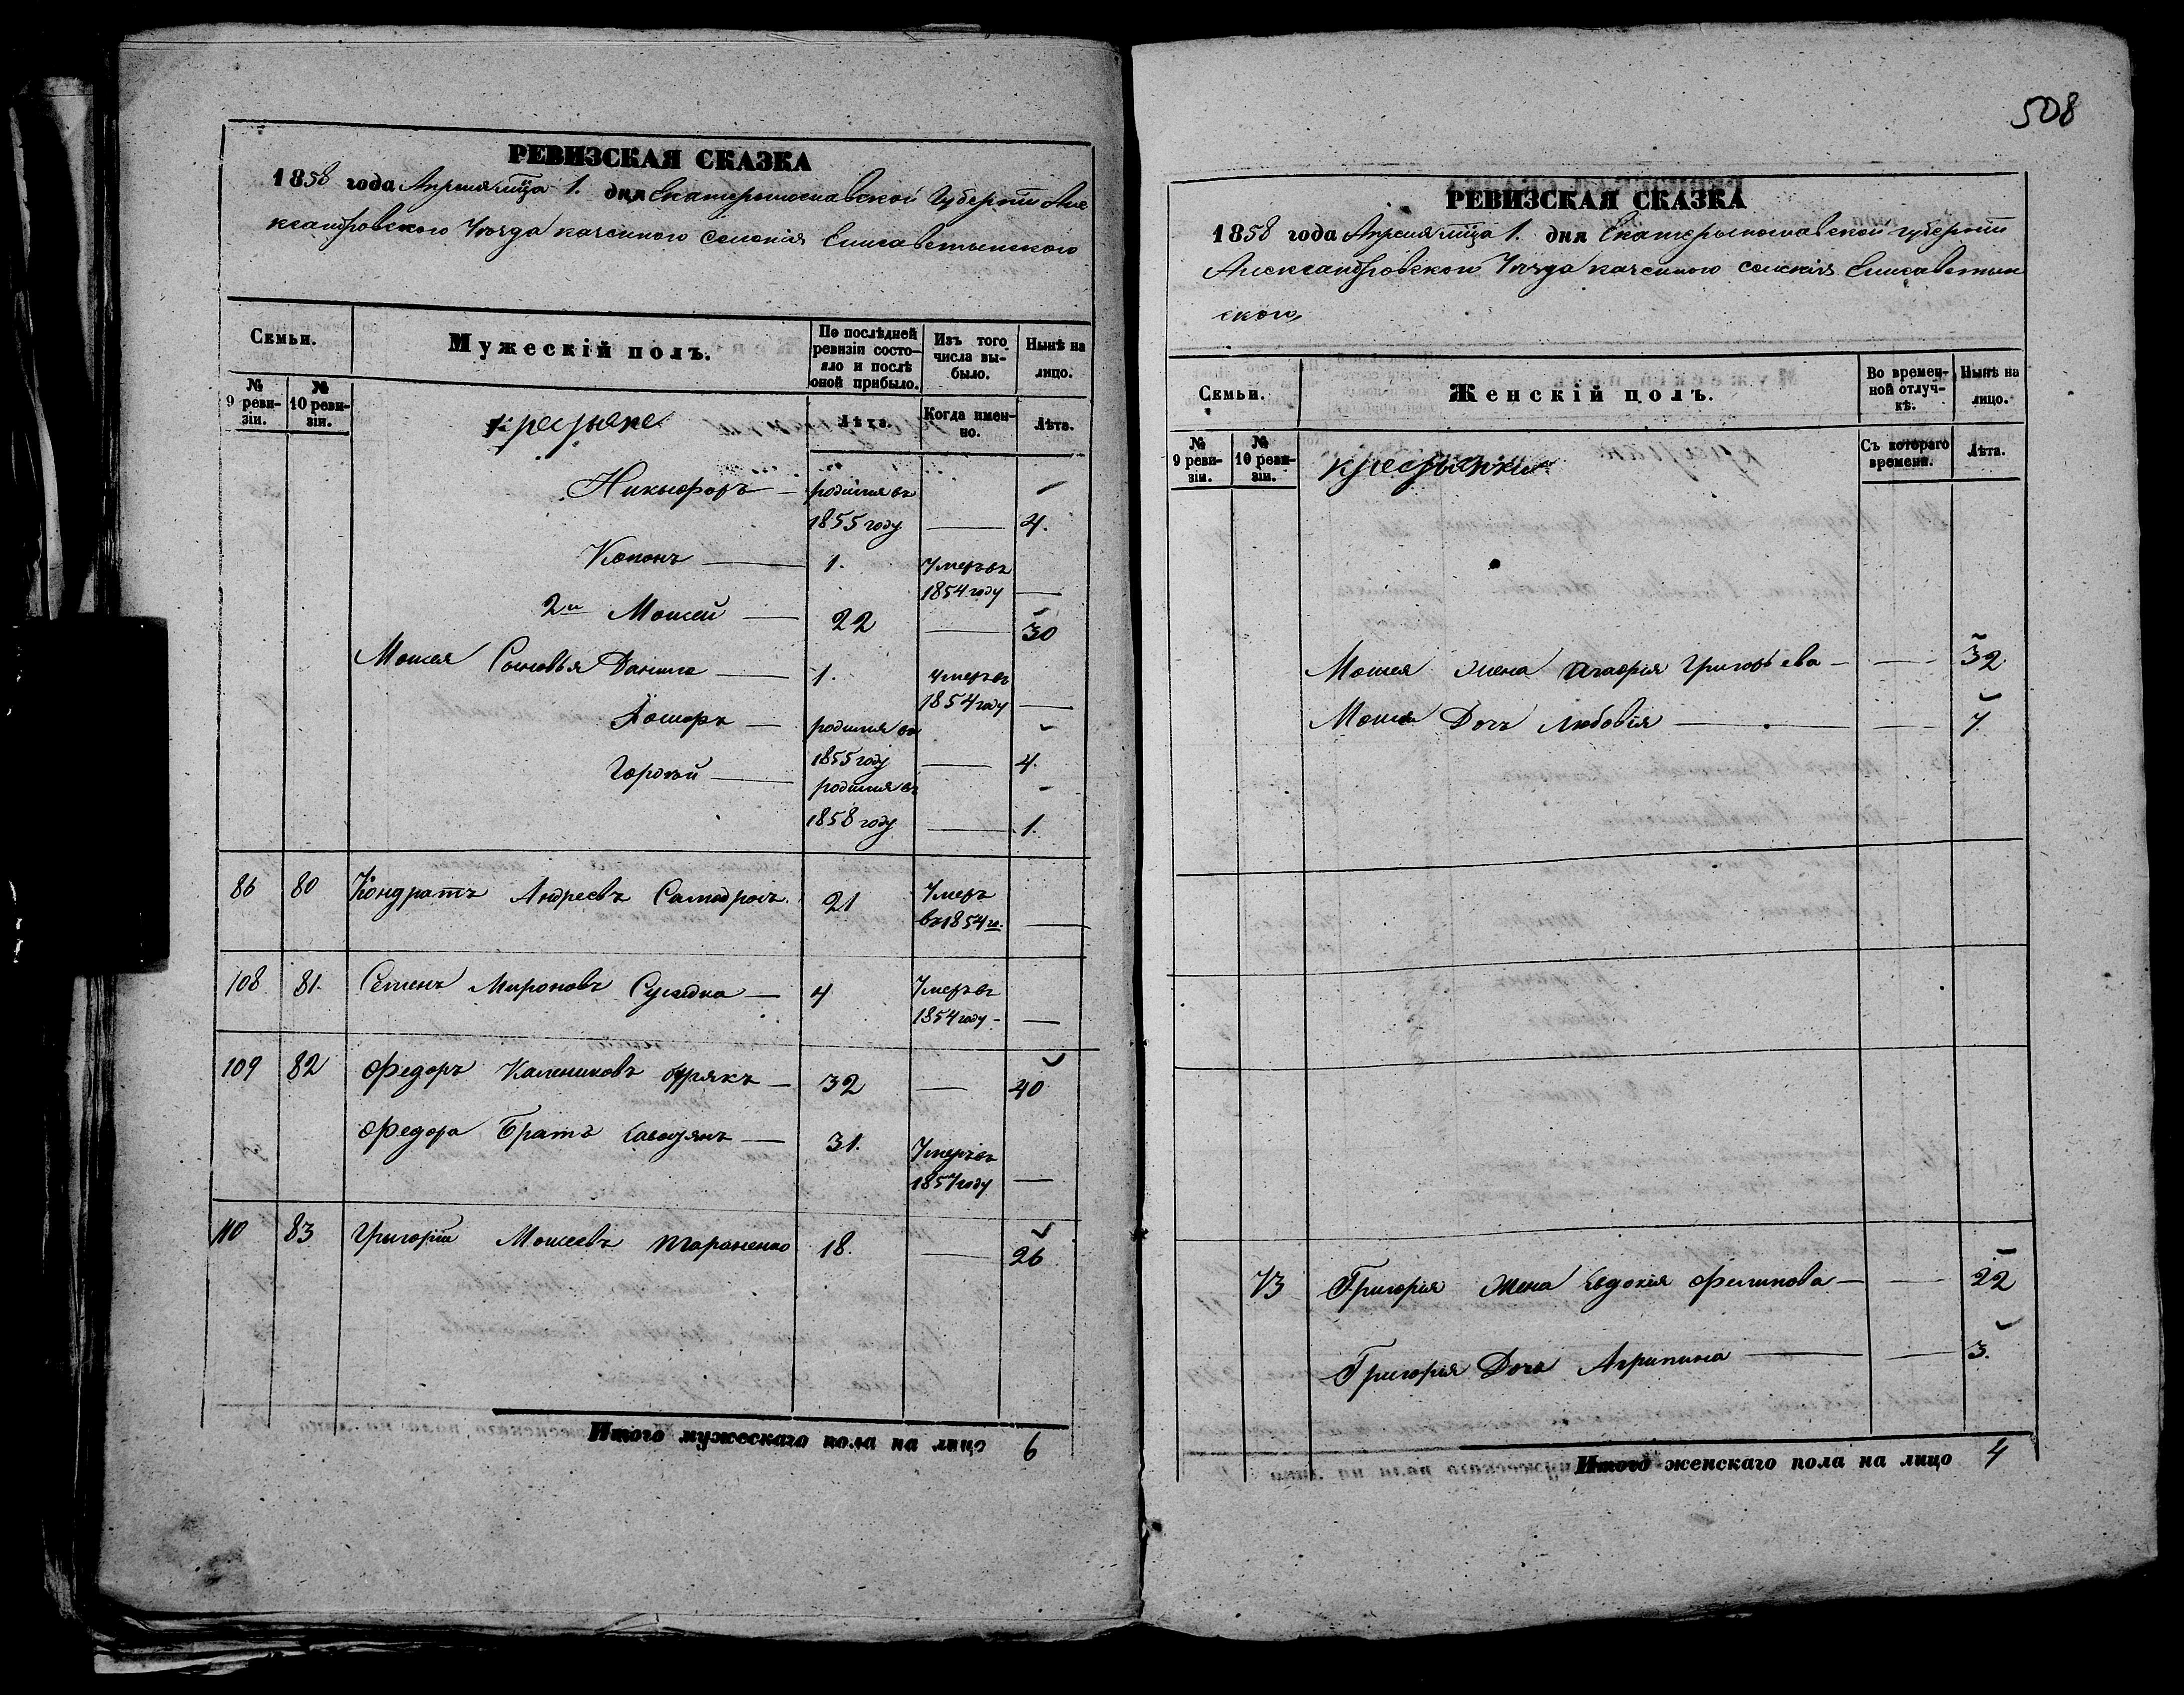 РЕВИЗСКАЯ СКАЗКА
1858 года Апреля мца 1. дня Екатеринославской Губернии Але
ксандровского Уезда казенного Селения Елисаветинского
Семьи.
№ 9 ревизіи.
№ 10 ревизіи.
Мужескій полъ.
По послѣдней ревизіи состояло и послѣ оной прибыло.
Изъ того числа выбыло.
Нынѣ на лицо.
Лѣта.
Когда именно.
Лѣта.
Никифоръ — родился въ
1855 году — 4.
Кононъ — 1. Умеръ въ
1854 году —
2й Моисей — 22 — 30
Моисея Сыновья Данило — 1. Умеръ въ
1854 году —
родился въ
1855 году — 4.
Гордѣй — родился въ
1858 году — 1.
86 80 Кондратъ Андреевъ 21 Умеръ
въ 1854 го. —
108 81. Семенъ Мироновъ — 4 Умеръ въ
1854 году —
109 82 Федоръ Калениковъ — 32 — 40
Федора Братъ — 31. Умеръ въ
1857 году —
110 83 Григорій Моисеевъ Тараненко 18. — 26
Итого мужескаго пола на лицо 6
508
РЕВИЗСКАЯ СКАЗКА
1858 года Апреля мца 1. дня Екатеринославской губернии
Александровского Уезда казенного селения Елисаветин
ского,
Семьи.
№ 9 ревизіи.
№ 10 ревизіи.
Женскій полъ.
Во временной отлучкѣ.
Нынѣ на лицо.
Съ котораго времени.
Лѣта.
Моисея жена Григорьева — — 32
Моисея Дочь Любовія — — 7.
73 Григорія Жена Евдокія Филипова — — 22
Григорія Дочь Агрипина — — 3.
Итого женскаго пола на лицо 4